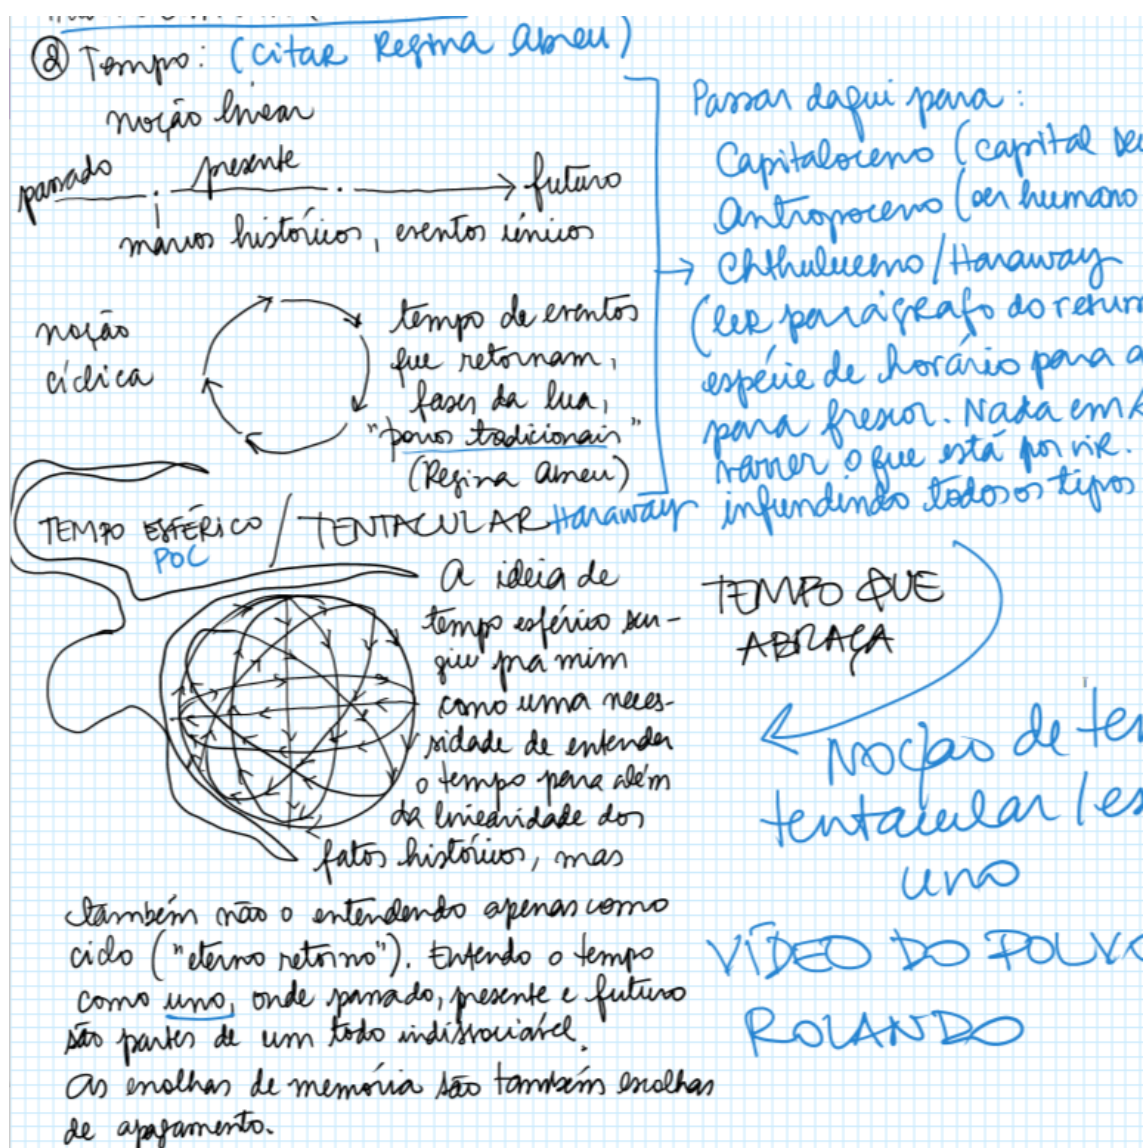 ② Tempo: (citar Regina Abreu)
noção linear
passado
presente
futuro
marcos históricos, eventos únicos
noção
cíclica
tempo de eventos
que retornam,
fases da lua,
"povos tradicionais"
(Regina Abreu)
TEMPO ESFÉRICO / TENTACULAR Haraway
POC
A ideia de
tempo esférico sur-
giu pra mim
como uma neces-
sidade de entender
o tempo para além
da linearidade dos
fatos históricos, mas
também não o entendendo apenas como
ciclo ("eterno retorno"). Entendo o tempo
como uno, onde passado, presente e futuro
são partes de um todo indissociável.
As escolhas de memória são também escolhas
de apagamento.
Passar daqui para:
Capitaloceno (capital
Antropoceno (ser humano
→ Chthuluceno/Haraway
(ler parágrafo do
espécie de horário para
para frescor. Nada em
varrer o que está por vir.
infundindo todos os tipos
TEMPO QUE
ABRAÇA
Noção de
tentacular /
uno
VÍDEO DO POLVO
ROLANDO